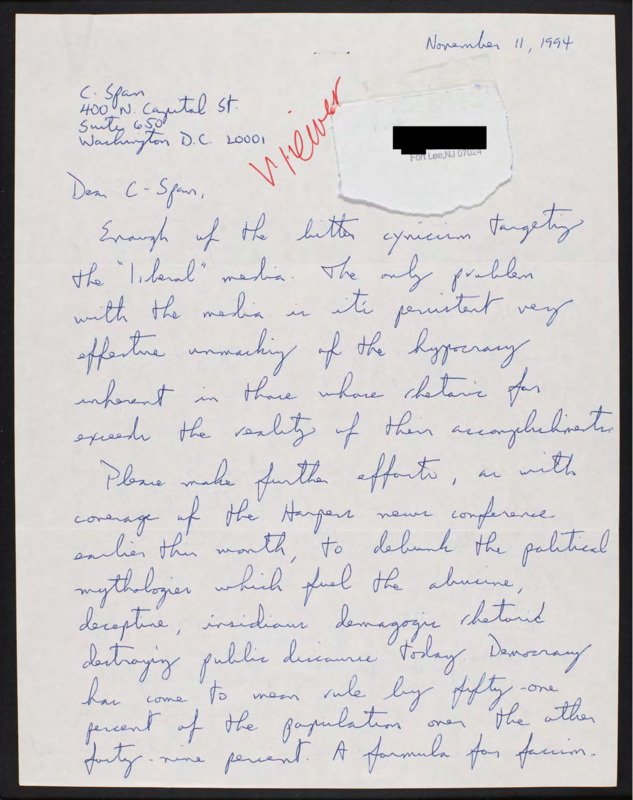 November 11, 1994
C-Span
400 N. Capital St.
Suite 650
Washington D.C. 20001
viewer
Fort Lee, NJ 07024
Dear C-Span,
Enough of the bitter cynicism targeting
the "liberal" media. The only problem
with the media is it's persistent very
effective unmasking of the hypocrasy
inherent in those whose rhetoric far
exceeds the reality of their accomplishments.
Please make further efforts, as with
coverage of the Harpers news conference
earlier this month, to debunk the political
mythologies which fuel the abusive,
deceptive, insidious demagogic rhetoric
destroying public discourse today. Democracy
has come to mean rule by fifty-one
percent of the population over the other
forty-nine percent. A formula for facism.